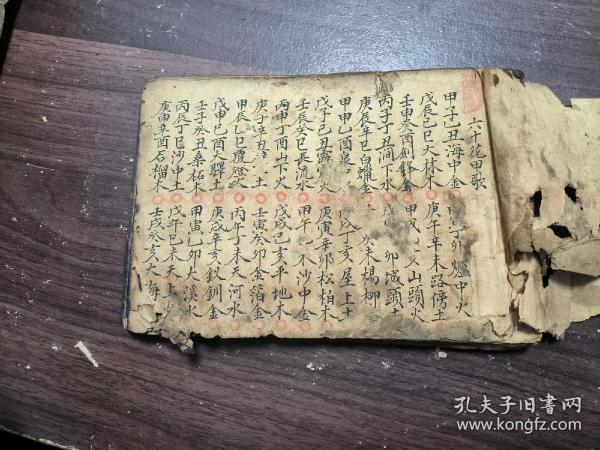 六十花甲歌
甲子乙丑海中金 丁卯爐中火
戊辰己巳大林木 庚午辛未路傍土
壬申癸酉劍鋒金 甲戌 山頭火
丙子丁丑澗下水 戊 卯城頭土
庚辰辛巳白蠟金 未楊柳木
甲申乙酉泉 戊子丁亥屋上土
戊子己丑霹 火 庚寅辛卯松柏木
壬辰癸巳長流水 甲午 沙中金
丙申丁酉山下火 戊戌己亥平地木
庚子辛丑 土 壬寅癸卯金箔金
甲辰乙巳覆燈火 丙午丁未天河水
戊申己酉大驛土 庚戌辛亥釵釧金
壬子癸丑桑柘木 甲寅乙卯大溪水
丙辰丁巳沙中土 戊午己未天上
庚申辛酉石榴木 壬戌癸亥大海
孔夫子旧书网
www.kongfz.com